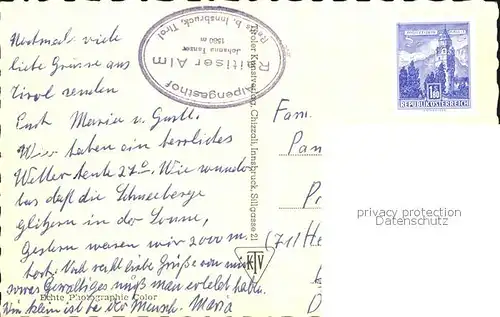 Nochmals viele
liebe Grüsse aus
Tirol senden
Euch Maria u.
Wir haben ein herrliches
Wetter heute 27° Wie wunder-
bar daß die Schneeberge
glitzern in der Sonne,
Gestern waren wir 2000 m.
hoch. Und recht liebe Grüße von mir
sowas Gewaltiges muß man erlebt haben.
Wie klein ist da der Mensch. Maria
Echte Photographie Color
Alpengasthof
Rettiser Alm
Johanna Tanzer
1560 m
b. Innsbruck, Tirol
Tiroler Kunstverlag Chizzali, Innsbruck, Sillgasse 21
KTV
Fam.
(71) He
1.80
REPUBLIK ÖSTERREICH
privacy protection
Datenschutz